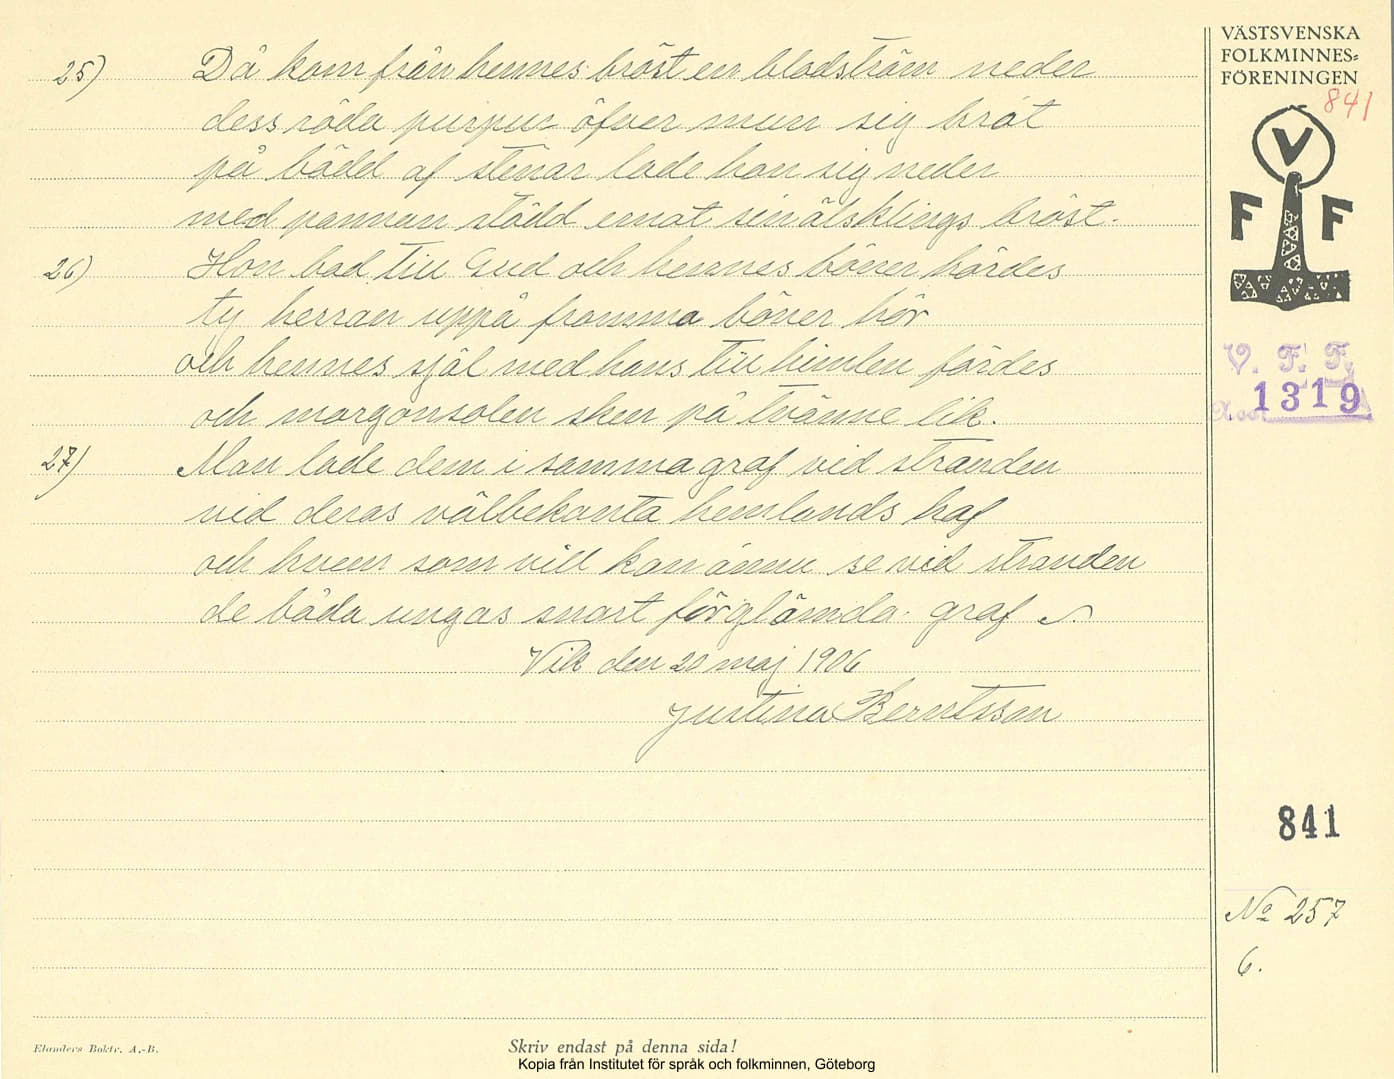 25) Då kom från hennes bröst en blodström neder
dess röda purpur öfver mun sig bröt
på bädd af stenar lade hon sig neder
med pannan stödd emot sin älsklings bröst.
26) Hon bad till Gud och hennes böner hördes
ty herran uppå fromma böner hör
och hennes själ med hans till himlen fördes
och morgonsolen sken på tvänne lik.
27) Man lade dem i samma graf vid stranden
vid deras välbekanta hemlands haf
och hvem som vill kan ännu se vid stranden
de båda ungas snart förglömda graf
Vik den 20 maj 1906
Justina Berntsson
VÄSTSVENSKA
FOLKMINNES-
FÖRENINGEN
841
V
F F
V. F. F.
1319
841
No 257
6.
Elanders Boktr. A.-B.
Skriv endast på denna sida!
Kopia från Institutet för språk och folkminnen, Göteborg